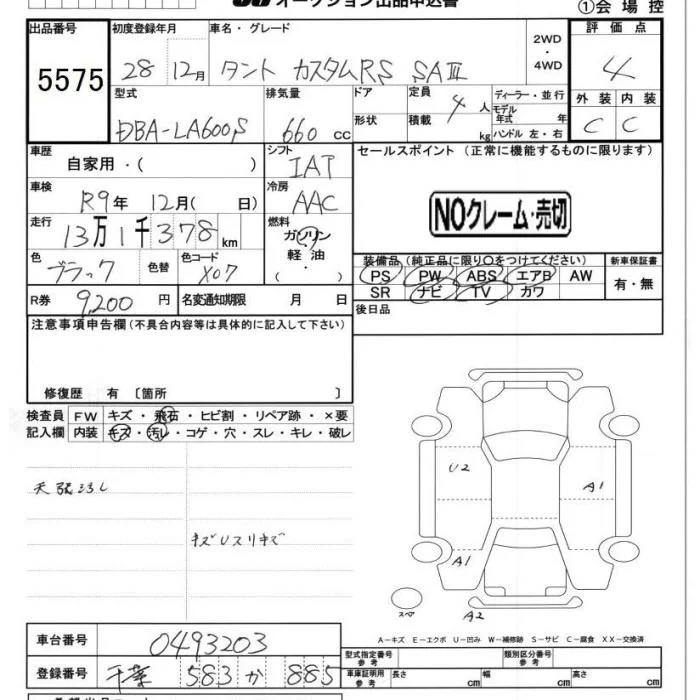 オークション出品申込書
①会場控
出品番号 初度登録年月 車名・グレード 2WD・4WD 評価点
5575 28 12月 タント カスタムRS SAⅢ 4
型式 排気量 ドア 定員 4人 ディーラー・並行 外装 内装
DBA-LA600S 660cc 形状 積載 kg モデル年式 年 ハンドル 左・右 C C
車歴 自家用・( ) シフト IAT セールスポイント (正常に機能するものに限ります)
車検 R9年 12月( 日) 冷房 AAC NOクレーム・売切
走行 13万1千378km 燃料 ガソリン 軽油・( )
色 ブラック 色替 色コード X07
装備品(純正品に限り○をつけてください) 新車保証書
PS PW ABS エアB AW 有・無
SR ナビ TV カワ
R券 9,200円 名変通知期限 月 日 後日品
注意事項申告欄(不具合内容等は具体的に記入して下さい)
修復歴 有 〔箇所 〕
検査員 FW キズ・飛石・ヒビ割・リペア跡・×要
記入欄 内装 キズ・汚レ・コゲ・穴・スレ・キレ・破レ
U2
天張ヨゴレ A1
キズUスリキズ
A1
スペア A2
A－キズ E－エクボ U－凹み W－補修跡 S－サビ C－腐食 XX－交換済
車台番号 0493203
型式指定番号 参考 類別区分番号 参考
登録番号 千葉 583 か 885
車庫証明用 参考 長さ cm 幅 cm 高さ cm